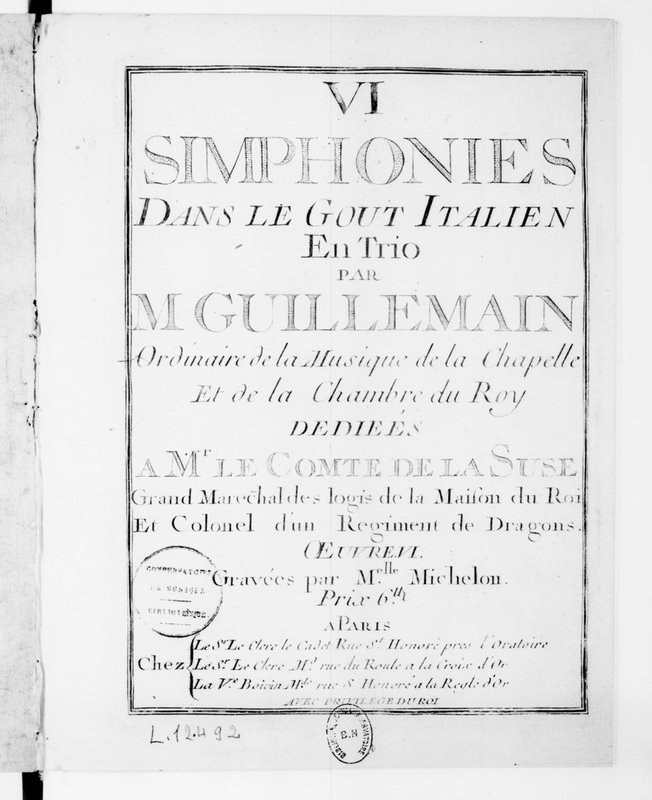 VI
SIMPHONIES
DANS LE GOUT ITALIEN
En Trio
PAR
M GUILLEMAIN
Ordinaire de la Musique de la Chapelle
Et de la Chambre du Roy
DEDIEÉS
A Mr LE COMTE DE LA SUSE
Grand Marechal des logis de la Maison du Roi
Et Colonel d'un Regiment de Dragons.
ŒUVRE VI.
Gravées par M.elle Michelon.
Prix 6.tt
A PARIS
Chez
Le Sr. Le Clerc le Cadet Rue St. Honoré pres l'Oratoire
Le Sr. Le Clerc Md. rue du Roule a la Croix d'Or
La Ve. Boivin Mde. rue S Honoré a la Regle d'Or
AVEC PRIVILEGE DU ROI
CONSERVATOIRE
DE MUSIQUE
BIBLIOTHÈQUE
B.N
L.12.492